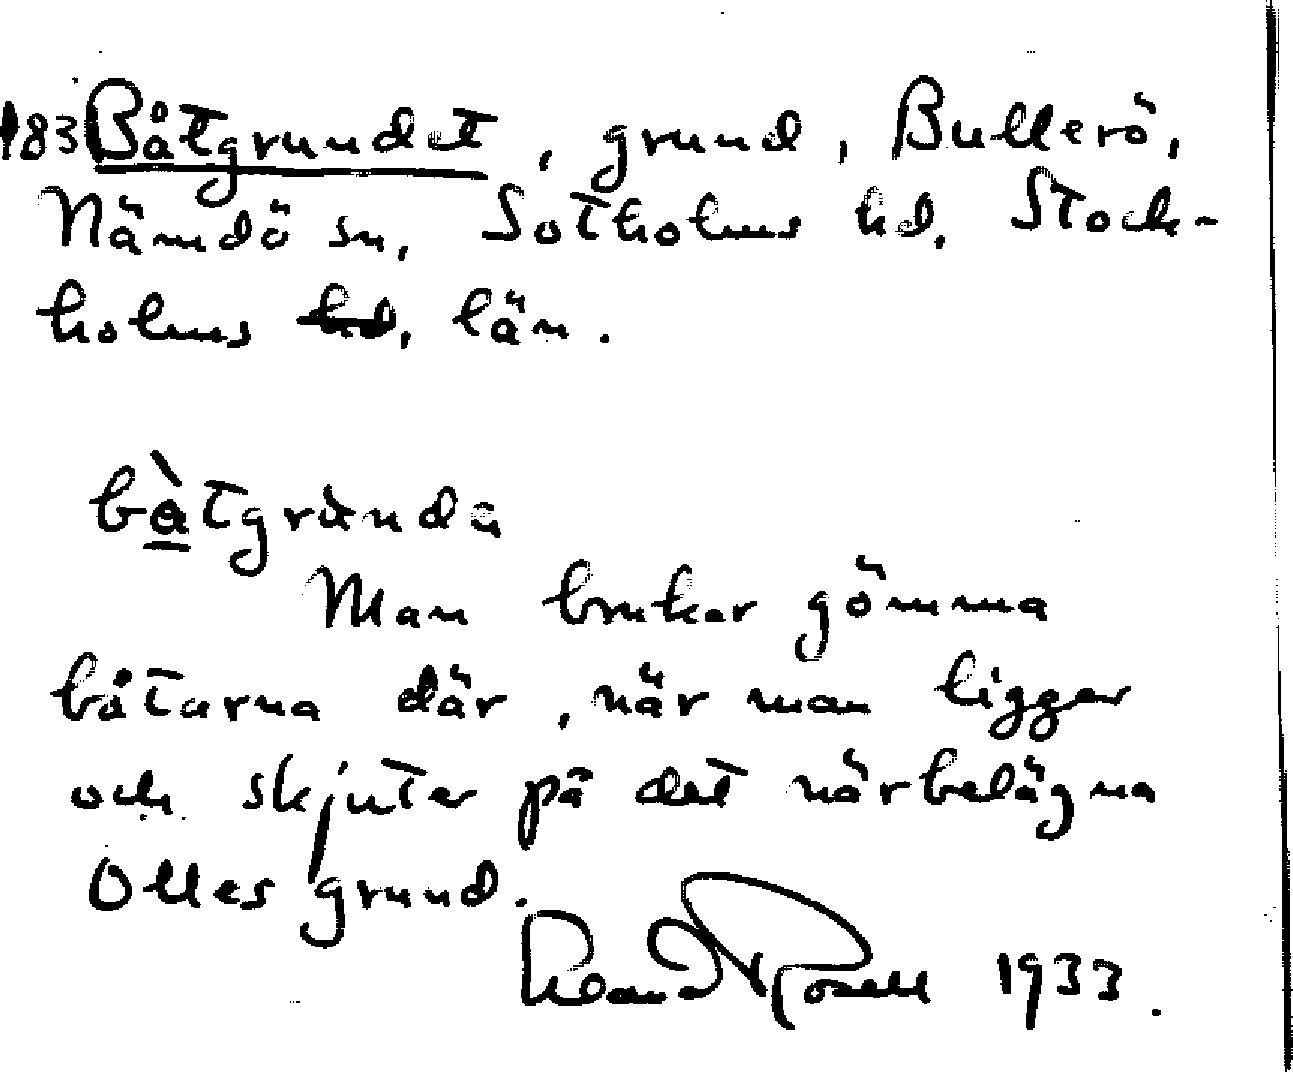 183 Båtgrundet, grund, Bullerö,
Nämdö sn, Sotholms hd, Stock-
holms hd, län.
bàtgrùnda
Man brukar gömma
båtarna där, när man ligger
och skjuter på det närbelägna
Olles grund.
1933.